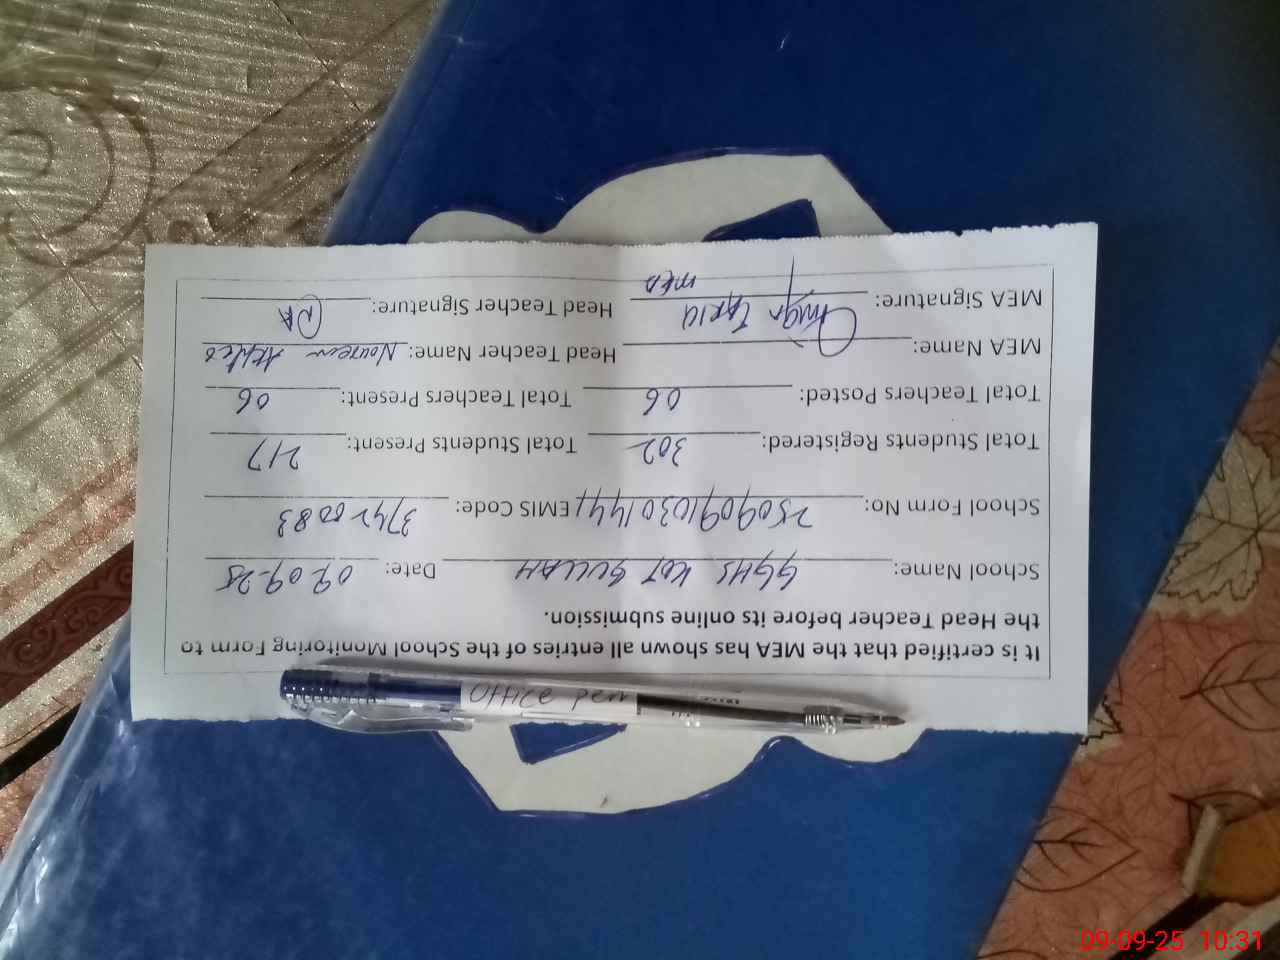 It is certified that the MEA has shown all entries of the School Monitoring Form to
the Head Teacher before its online submission.
School Name: GGHS KOT GULLAH Date: 09-09-25
School Form No: 25090910301441 EMIS Code: 37420083
Total Students Registered: 302 Total Students Present: 217
Total Teachers Posted: 06 Total Teachers Present: 06
MEA Name: Head Teacher Name: Noureen
MEA Signature: MEA Head Teacher Signature:
09-09-25 10:31